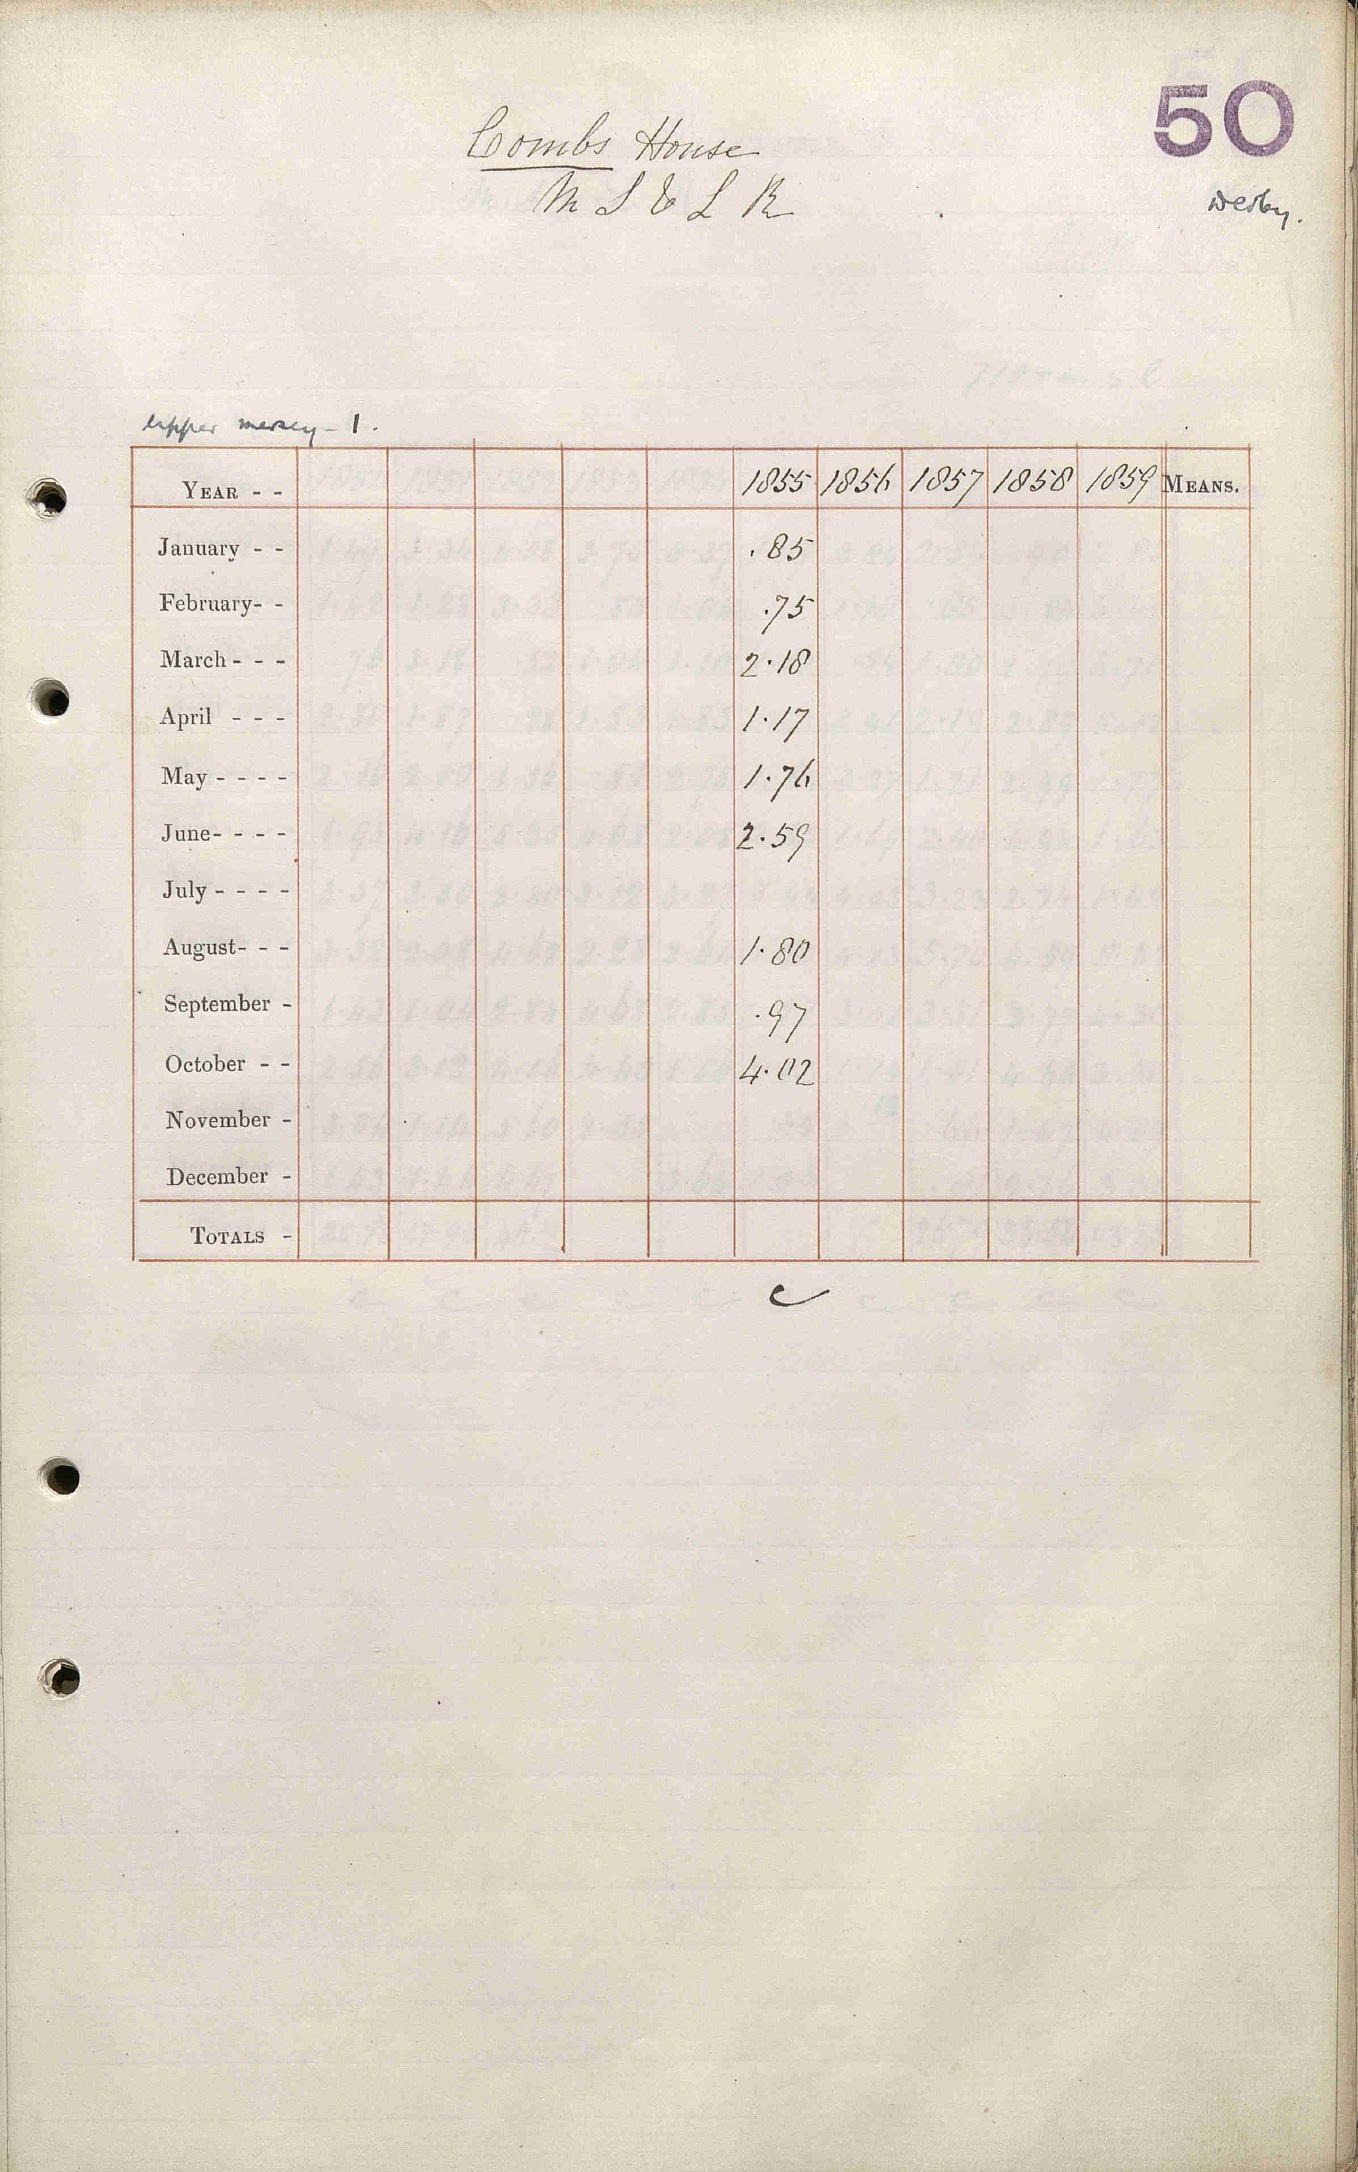 50
Combs House
M S & L R
Derby.
Upper Mersey - 1.
YEAR - - 1855 1856 1857 1858 1859 MEANS.
January - - .85
February- - .75
March - - - 2.18
April - - - 1.17
May - - - - 1.76
June- - - - 2.59
July - - - -
August- - - 1.80
September - .97
October - - 4.02
November -
December -
TOTALS -
c